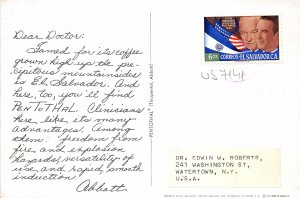 Dear Doctor:
Famed for its coffee
grown high up the pre-
cipitous mountainsides
is El Salvador. And
here too, you'll find
PENTOTHAL. Clinicians
here like its many
advantages. Among
them: freedom from
fire and explosion
hazards, versatility of
use, and rapid, smooth
induction.
Abbott
PENTOTHAL (Thiopental, Abbott)
6 CTS
CORREOS EL SALVADOR C.A.
DR. EDWIN W. ROBERTS,
241 WASHINGTON ST,
WATERTOWN, N.Y.
U.S.A.